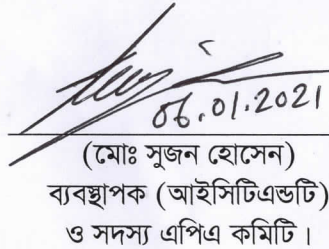 06.01.2021
(মোঃ সুজন হোসেন)
ব্যবস্থাপক (আইসিটিএন্ডটি)
ও সদস্য এপিএ কমিটি।